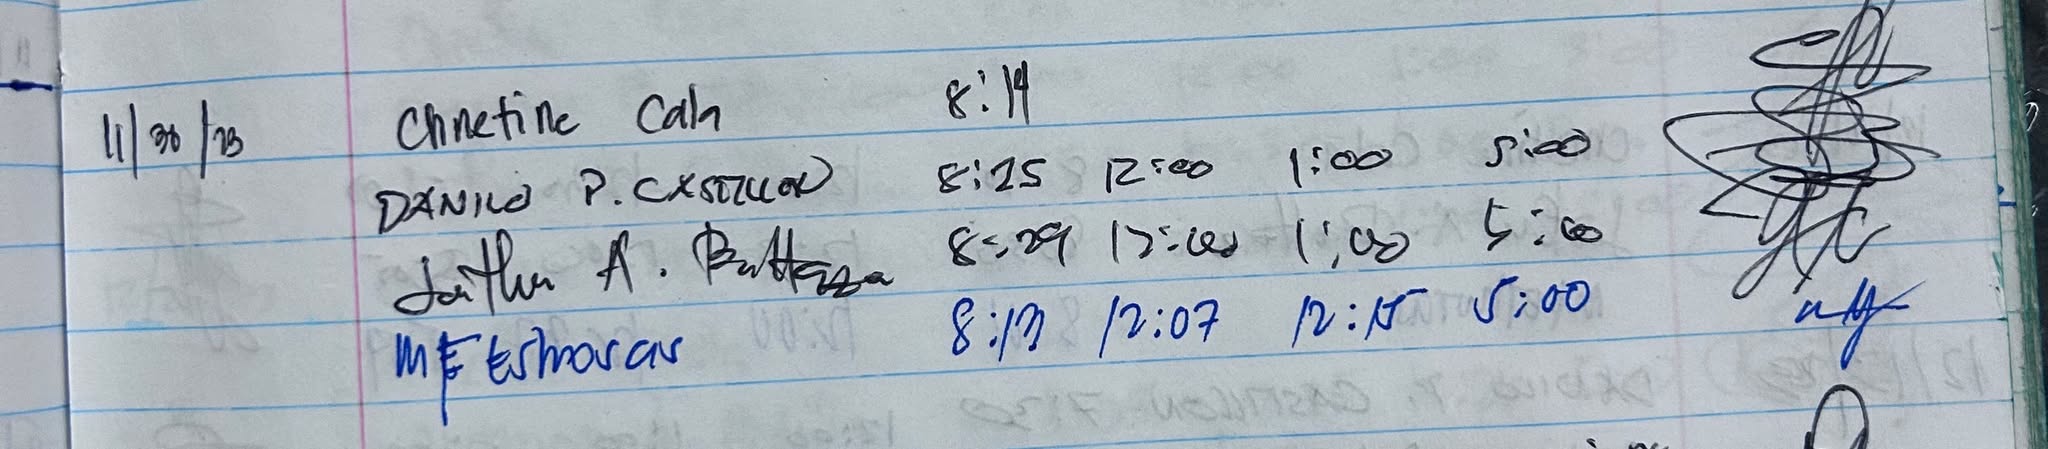 11/30/23 Chnetine Caln 8:14
DANILO P. CASTILLON 8:25 12:00 1:00 5:00
A. 8:29 12:00 1:00 5:00
MF 8:13 12:07 12:15 5:00